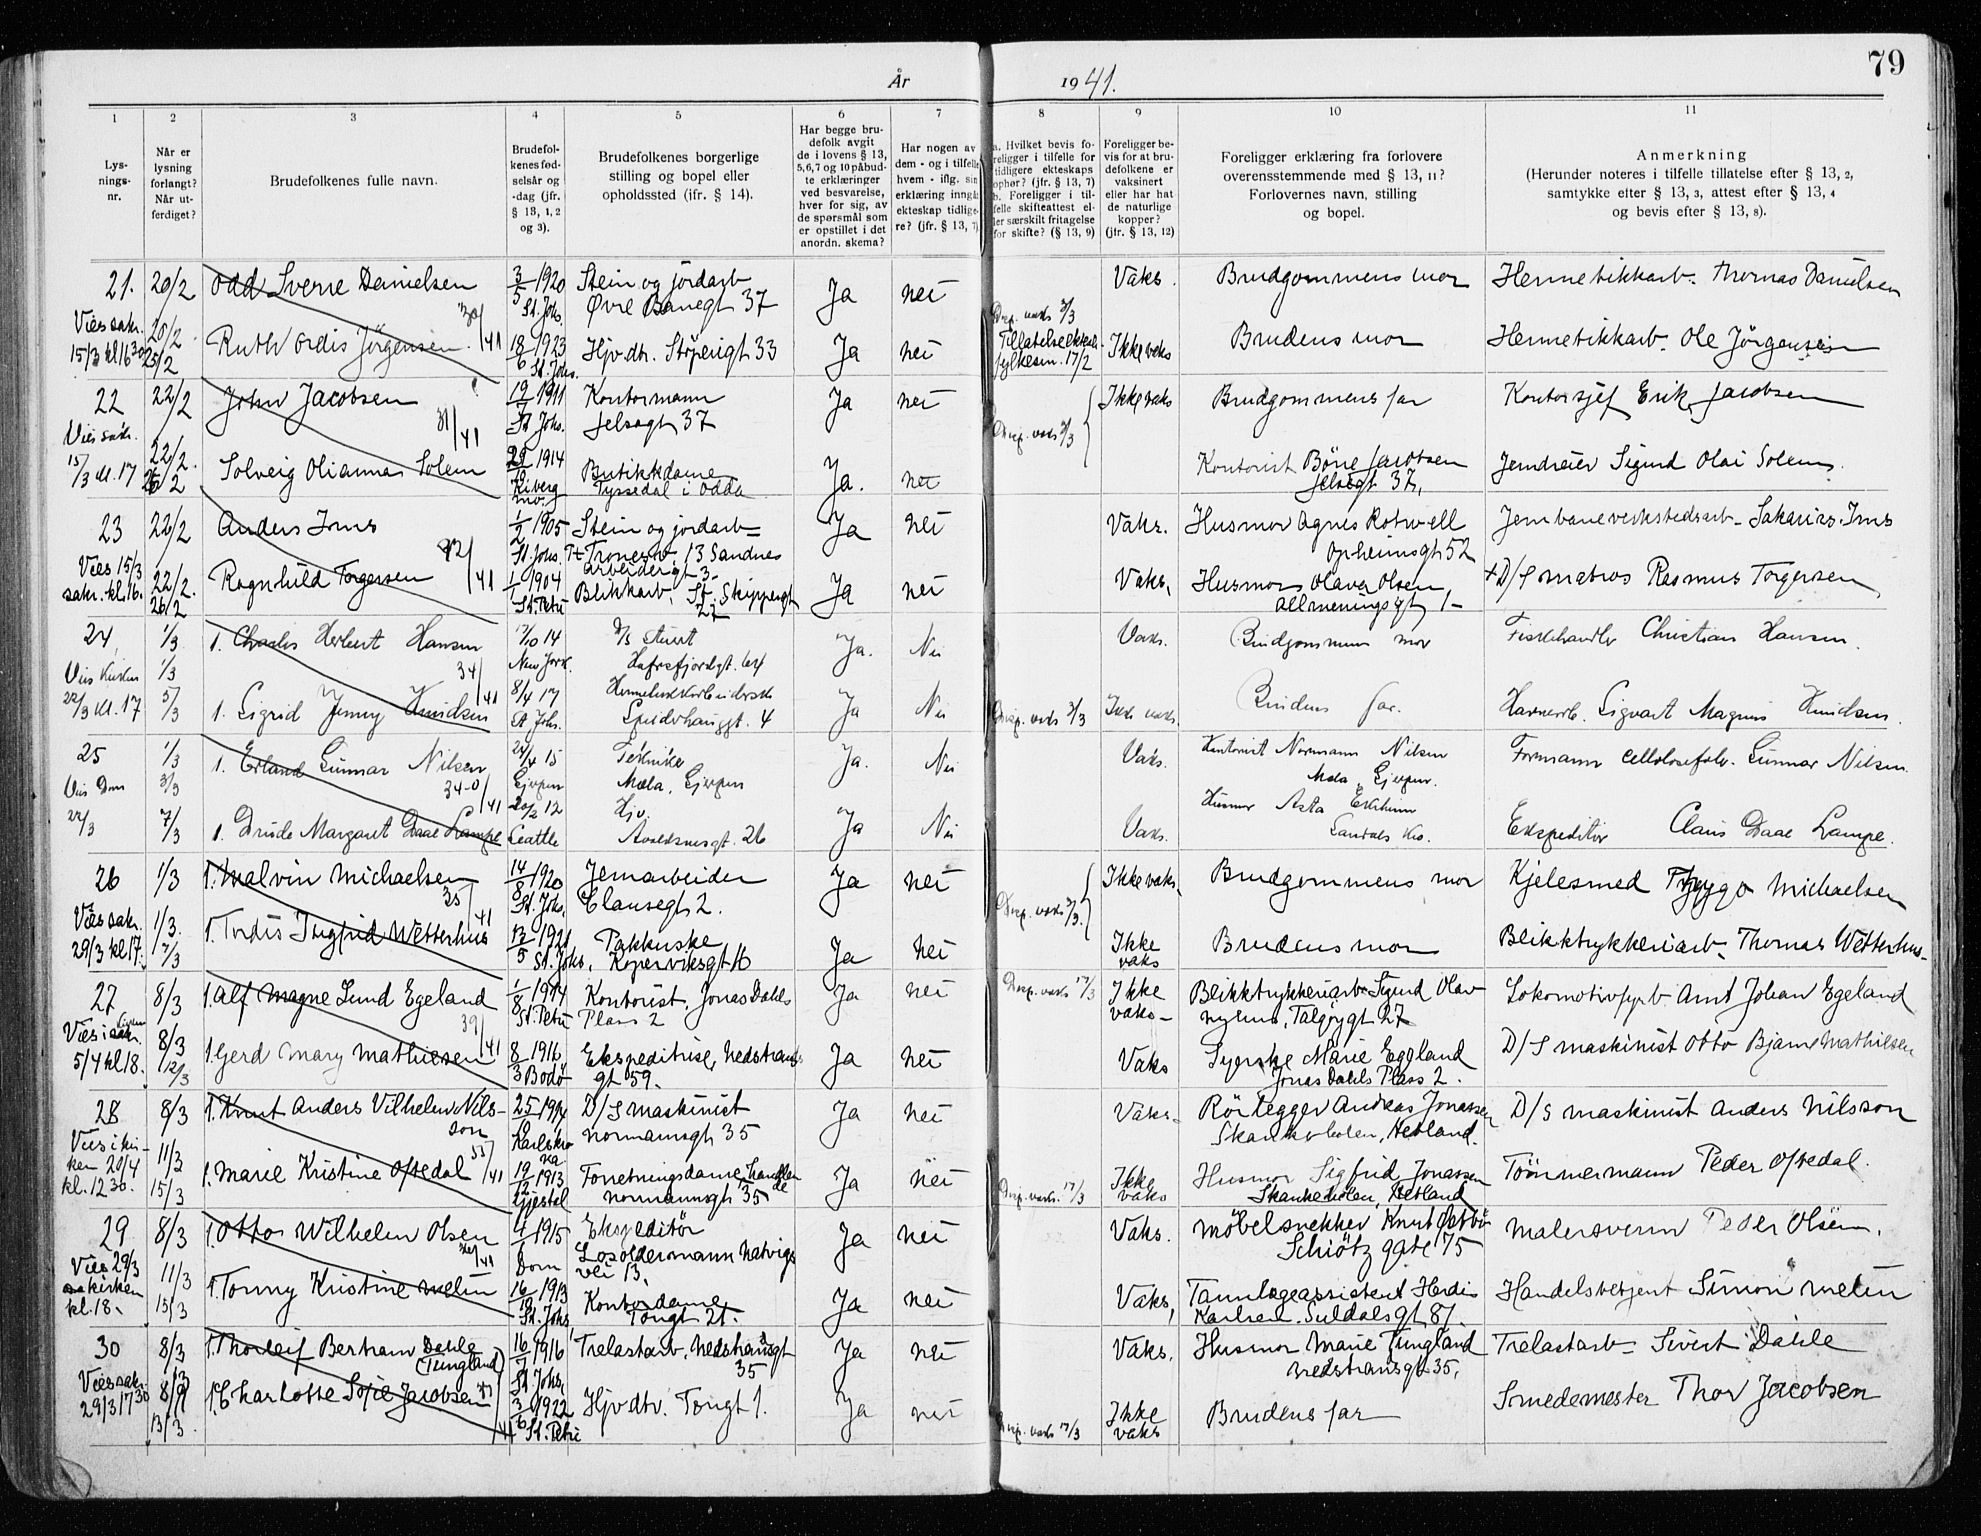 79
År 1941.
1
2
3
4
5
6
7
8
9
10
11
Lys-
nings-
nr.
Når er
lysning
forlangt?
Når ut-
ferdiget?
Brudefolkenes fulle navn.
Brudefol-
kenes fød-
selsår og
-dag (jfr.
§ 13, 1, 2
og 3).
Brudefolkenes borgerlige
stilling og bopel eller
opholdssted (ifr. § 14).
Har begge bru-
defolk avgit
de i lovens § 13,
5,6,7 og 10 påbud-
te erklæringer
ved besvarelse,
hver for sig, av
de spørsmål som
er opstillet i det
anordn. skema?
Har nogen av
dem - og i tilfelle
hvem - iflg. sin
erklæring inngått
ekteskap tidlige-
re? (jfr. § 13, 7)
a. Hvilket bevis fo-
religger i tilfelle for
tidligere ekteskaps
ophør? (jfr. § 13, 7)
b. Foreligger i til-
felle skifteattest el-
ler særskilt fritagelse
for skifte? (§ 13, 9)
Foreligger be-
vis for at bru-
defolkene er
vaksinert
eller har hat
de naturlige
kopper?
(jfr. § 13, 12)
Foreligger erklæring fra forlovere
overensstemmende med § 13, 11?
Forlovernes navn, stilling
og bopel.
Anmerkning
(Herunder noteres i tilfelle tillatelse efter § 13, 2,
samtykke efter § 13, 3, attest efter § 13, 4
og bevis efter § 13, 8).
21. 20/2 Odd Sverre Danielsen 3/5 1920 St. Johs. Stein og jordarb Øvre Banegt 37 Ja nei Vaks. Brudgommens mor Hermetikkarb. Thomas Danielsen
Vies sakr. 15/3 kl 16 30 20/2 25/2 Ruth Ordis Jörgensen 30/41 18/6 1923 St. Johs. Hjv. dtr. Stöperigt 33 Ja nei Disp. vaks 3/3 Tillatelse fylkesm. 17/2 Ikke vaks Brudens mor Hermetikkarb. Ole Jörgensen
22 22/2 John Jacobsen 31/41 1911 St. Johs. Kontormann Jelsagt 37 Ja nei Disp. vaks 3/3 Ikke vaks Brudgommens far Kontorsjef Erik Jacobsen
Vies sakr. 15/3 kl. 17 22/2. 26/2 Solveig Olianna Solem 1914 Kiberg Butikkdame Tyssedal i Odda Ja. nei Kontorist Jacobsen Jelsagt 37, Sigurd Olai Solem.
23 22/2 Anders Ims 1/2 1905 St. Johs. Stein og jordarb Tronesv. 13 Sandnes Ja nei Vaks. Husmor Agnes Rotwell Opheimsgt 52 Jernbaneverkstedsarb. Sakarias Ims
Vies 15/3 sakr. kl. 16. 22/2. 26/2 Ragnhild Torgersen /41 1904 St. Petri Arbeidergt 3 Blikkarb. St. Skippergt 22 Ja nei Vaks. Husmor Olava Olsen, Allmenningsgt 1 D/S matros Rasmus Torgersen
24, 1/3 1. Charles Herbert Hansen 34/41 /10 14 New York D/S stuert Hafrsfjordgt. 64 Ja. Nei Vaks. Brudgommens mor Fiskehandler Christian Hansen.
Vies Kirken 22/3 kl. 17 1/3 5/3 1. Sigrid Jenny Knudsen 8/4 17 St. Johs. Ja Nei Disp. vaks 3/3 Ikke vaks. Brudens far. Havnearb. Sigvart Magnus Knudsen.
25 1/3 1. Erland Gunnar Nilsen 24/4 15 Gjerpen Tekniker Mæla, Gjerpen Ja. Nei Vaks. Kontorist Normann Nilsen Mæla, Gjerpen. Formann cellulosefabr. Gunnar Nilsen.
Vies Dom 22/3 3/3 7/3 1. Drude Margaret Daae Lampe 34-0/41 20/2 12 Seattle Hjv. Avaldsnesgt. 26 Ja Nei Vaks. Husmor Asta Ekspeditör Claus Daae Lampe.
26 1/3 1. Malvin Michaelsen 35/41 14/8 1920 St. Johs. Jernarbeider Clausegt 2. Ja nei Disp. vaks 7/3. Ikke vaks. Brudgommens mor Kjelesmed Trygve Michaelsen
Vies sakr. 29/3 kl 17. 1/3. 7/3 1. Tordis Ingfrid Wetterhus 13/5 1921 St. Johs. Pakkerske Koperviksgt 16 Ja nei Ikke vaks Brudens mor Blikktrykkeriarb. Thomas Wetterhus
27 8/3 1. Alf Magne Lund Egeland 39/41 1/8 1914 St. Petri Kontorist, Jonas Dahls Plass 2 Ja nei Disp. vaks 17/3 Ikke vaks Blikktrykkeriarb. Sigurd Olav Talgjegt 27 Lokomotivfyrb. Arnt Johan Egeland
Vies i sakr. 5/4 kl 18. 8/3 12/3 1. Gerd Mary Mathiesen 8/3 1916 Bodö Ekspeditrise, Nedstrandsgt 59. Ja nei Vaks Syerske Marie Egeland Jonas Dahls Plass 2. D/S maskinist Otto Bjarne Mathiesen
28 8/3 1. Knut Anders Vilhelm Nilsson 53/41 25/ 1914 Karlskrona D/S maskinist Normannsgt 35 Ja nei Vaks. Rörlegger Andreas Jonassen Skankeholen, Hetland. D/S maskinist Anders Nilsson
Vies i kirken 20/4 kl. 12 30. 11/3 15/3 1. Marie Kristine Oftedal 19/12 1913 Gjestal Forretningsdame Normannsgt 35 Ja nei Disp. vaks. 17/3 Ikke vaks Husmor Sigfrid Jonassen Skankeholen, Hetland Tömmermann Peder Oftedal.
29 8/3 1. Otto Wilhelm Olsen /41 4/ 1915 Dom Ekspeditör Losoldermann Natvigs vei 13. Ja nei Vaks. Möbelsnekker Knut Schiötz gate 75 Malersvenn Peder Olsen.
Vies 29/3 kirken kl. 18. 11/3 15/3 1. Tonny Kristine Melin 16/ 1913 St. Johs. Kontordame Tongt 21. Ja nei Vaks, Tannlegeassistent Herdis Karlsen. Suldalsgt 81. Handelsbetjent Simon Melin
30 8/3 1. Thorleif Bertram Dahle (Tungland) 16/ 1916 St. Johs. Trelastarb. Nedstrandsgt 35 Ja nei Vaks. Husmor Marie Tungland Nedstrandsgt 35, Trelastarb. Sivert Dahle
Vies sakr. 29/3 17 30 8/3 13/3 1. Charlotte Sofie Jacobsen 3/6 1922 St. Petri Hjv. dtr. Tongt 1. Ja nei Disp. vaks 17/3 Ikke vaks Brudens far Smedemester Thor Jacobsen